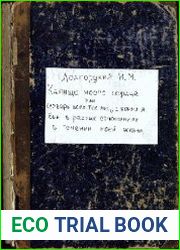 Долгорукий И.М.
Капище моего сердца
или
словарь всех тех лиц, с коими я
был в разных отношениях
в течении моей жизни
ECO TRIAL BOOK